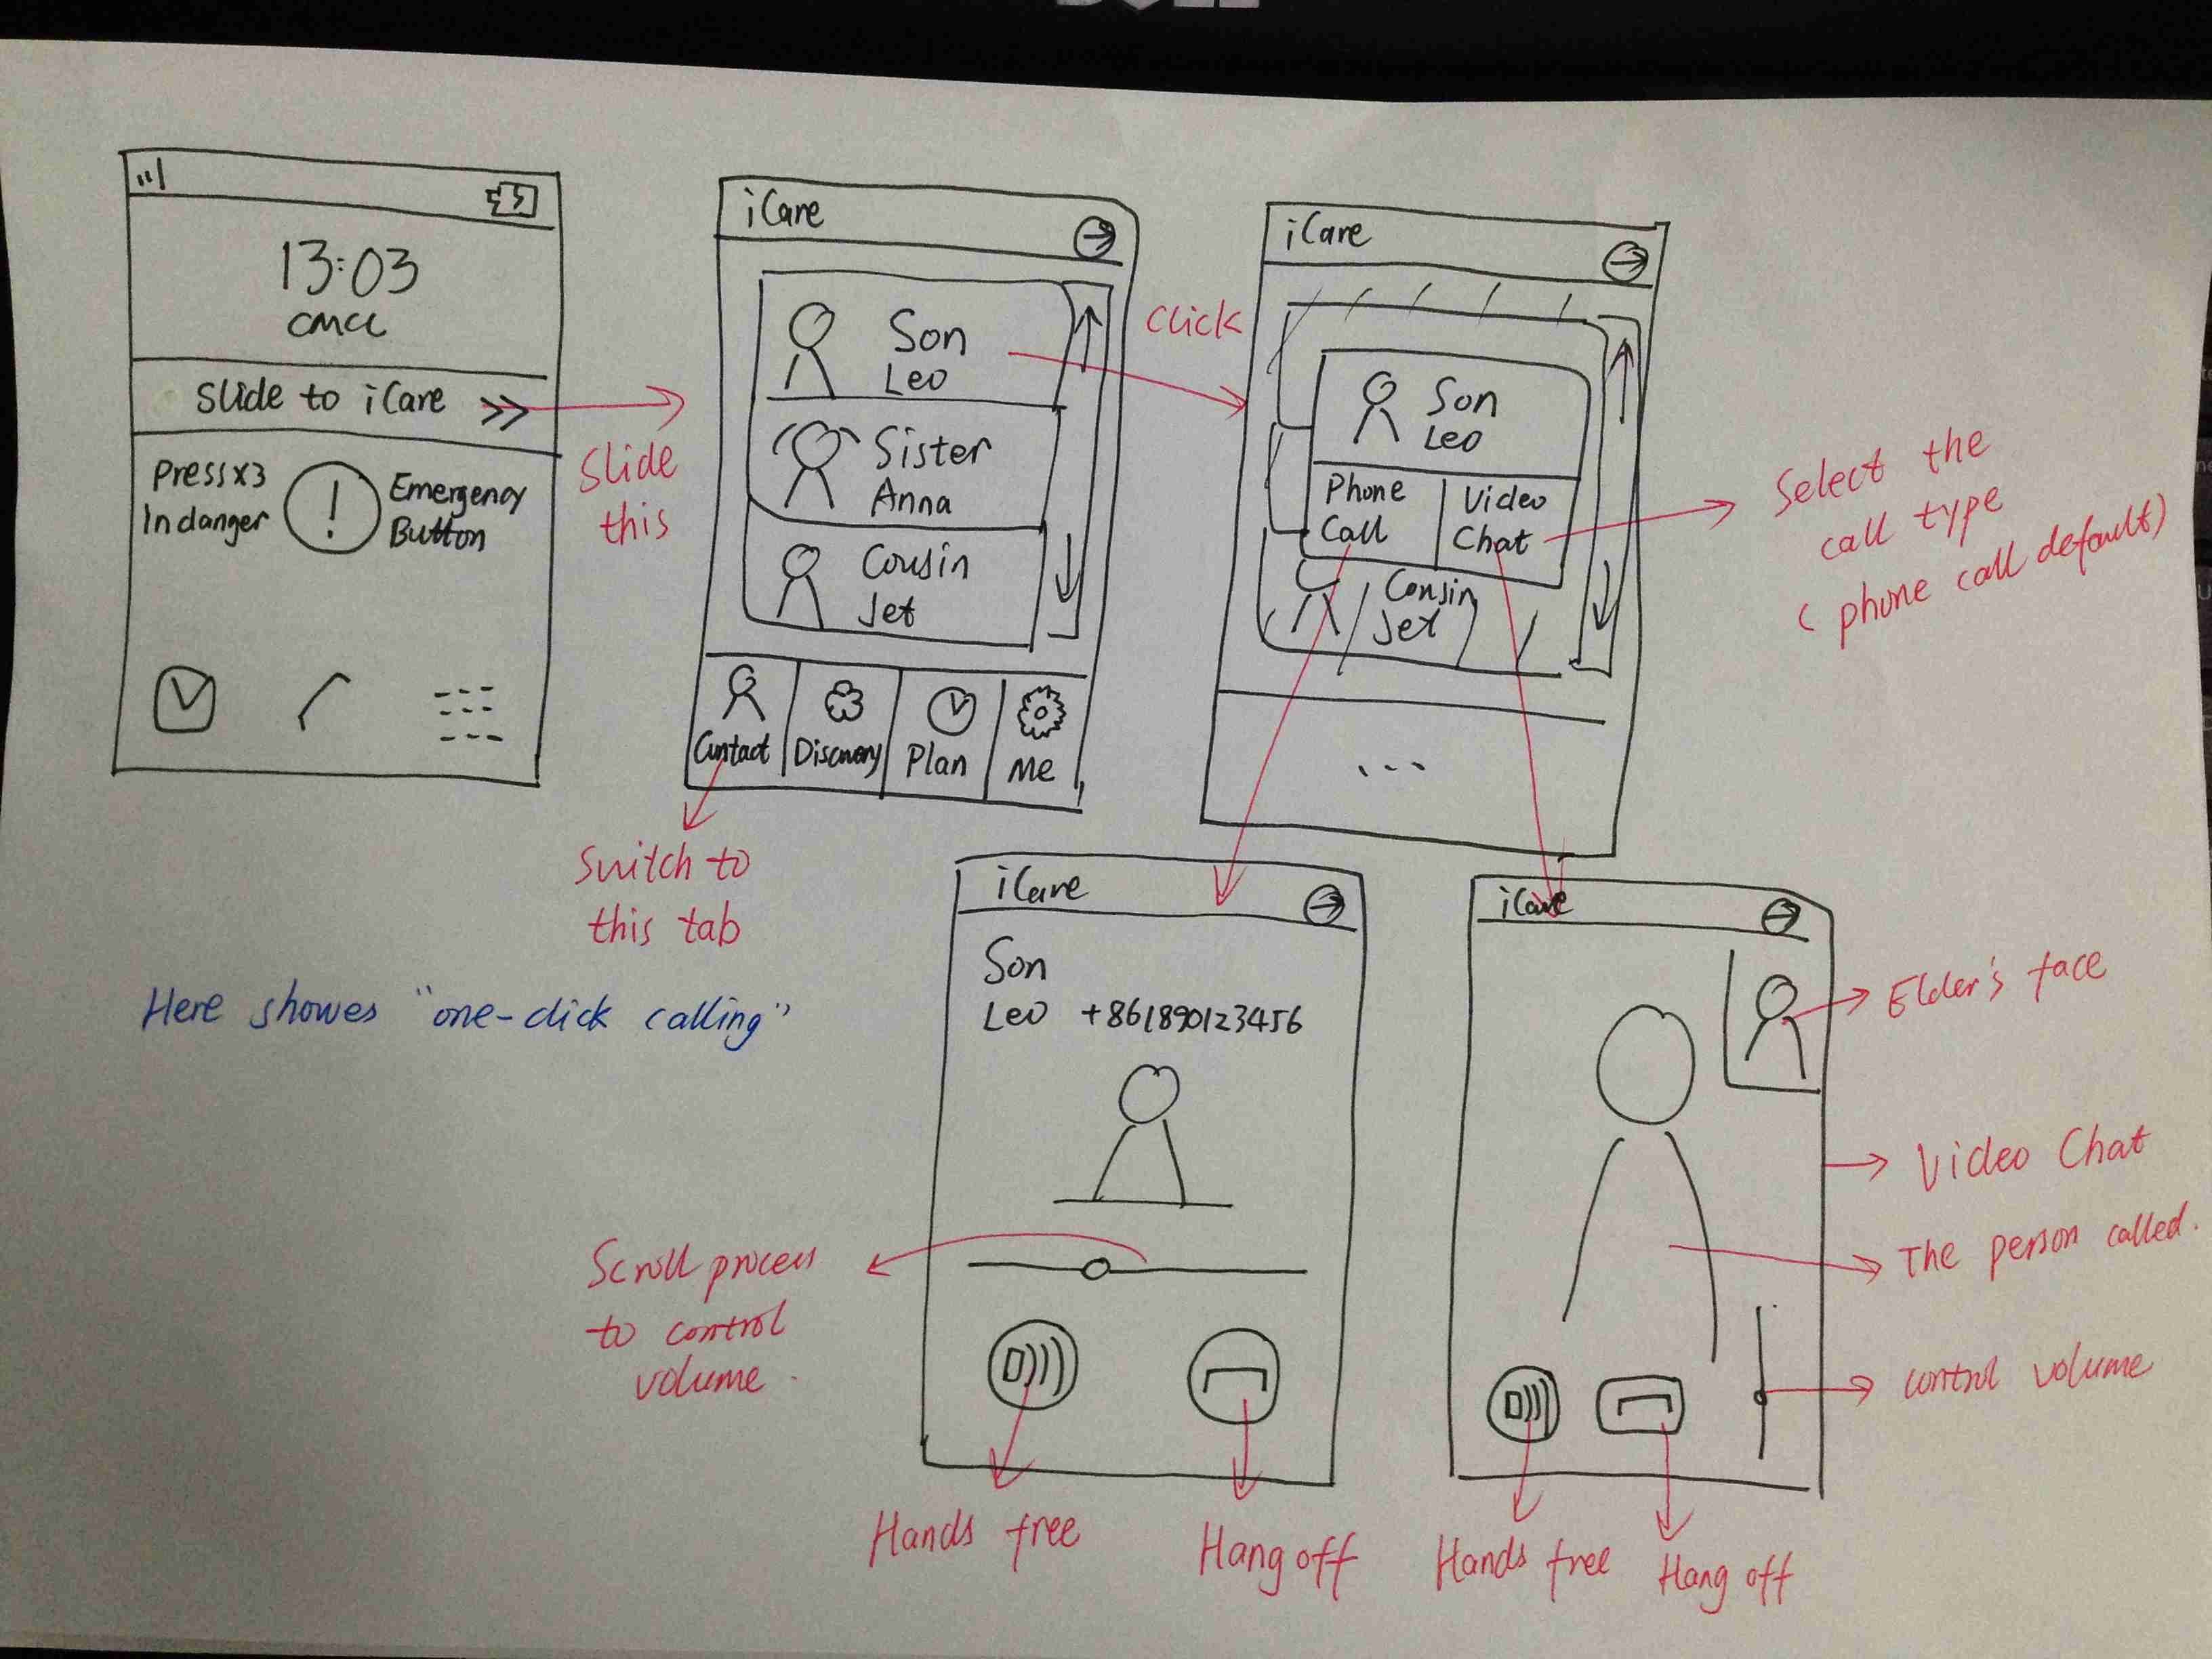 13:03
CMCC
Slide to iCare >>
Press x3
In danger
!
Emergency
Button
Slide
this
iCare
Son
Leo
Sister
Anna
Cousin
Jet
Contact
Discovery
Plan
Me
Switch to
this tab
Click
iCare
Son
Leo
Phone
Call
Video
Chat
Cousin
Jet
...
Select the
call type
( phone call default)
Here showes "one-click calling"
iCare
Son
Leo +861890123456
Scroll process
to control
volume.
Hands free
Hang off
iCare
Elder's face
Video Chat
The person called.
control volume
Hands free
Hang off